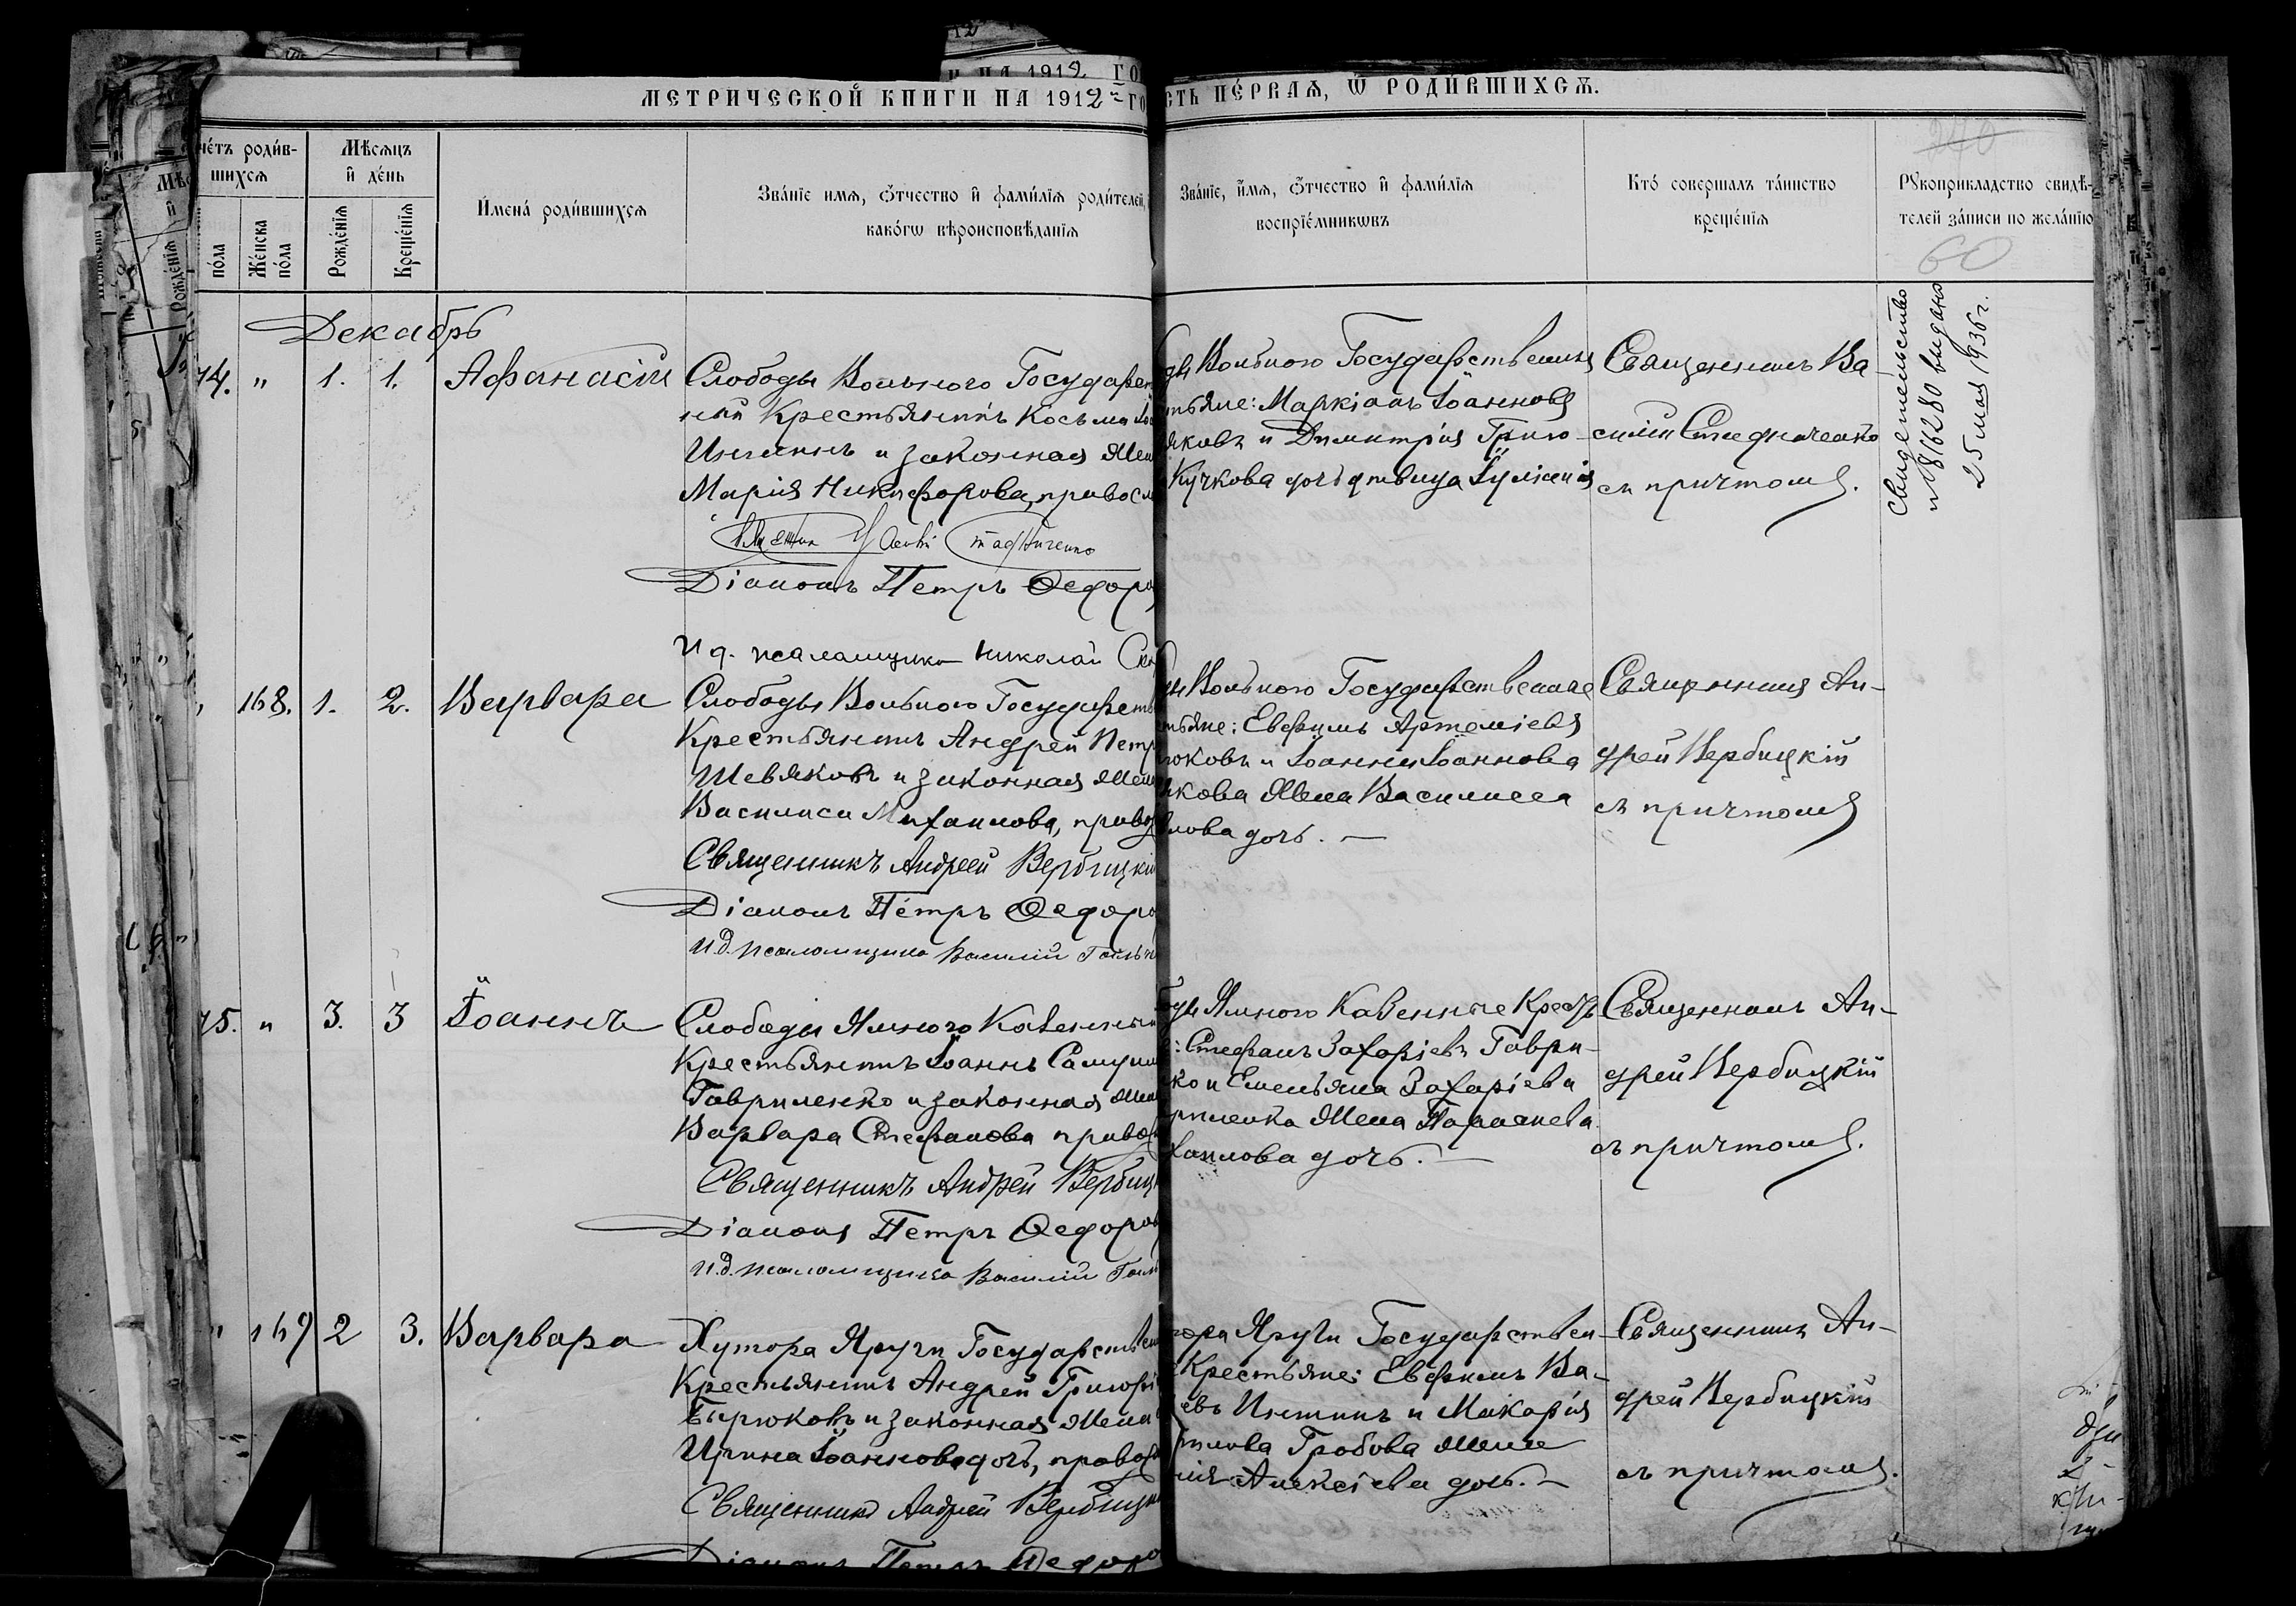 МЕТРИЧЕСКОЙ КНИГИ НА 1912 ГО
СТЬ ПЕРВАѦ, Ѿ РОДИВШИХСѦ.
чéтъ роди́в-
шихсѧ
Мѣ́сѧцъ
и҆ де́нь
пóла
Жéнска
пóла
Рождéнїѧ
Крещéнїѧ
И҆мена̀ роди́вшихсѧ
Звáнїе имѧ, ѻ҆́тчество и҆ фами́лїѧ роди́телей,
какóгѡ вѣроисповѣ́данїѧ
Звáнїе, и҆́мѧ, ѻ҆́тчество и҆ фами́лїѧ
воспрїéмникѡвъ
Ктó совершалъ тáинство
крещéнїѧ
Рꙋкоприкладство свидѣ́-
телей зáписи по желáнїю
60
Декабрь
74. " 1. 1. Афанасій
Слободы Вольного Государст
ный Крестьянинъ Косьма
и законная жен
Марія Никифорова, правосл
Діаконъ Петръ Ѳедоро
И д. псаломщика Николай
ды Вольного Государственные
тьяне: Маркіанъ Іоанновъ
яковъ и Димитрія Григо-
Кучкова дочь дѣвица Іуліанія
Священникъ Ва-
силій Стадниченко
съ причтомъ.
Свидетельство
№ 816280 выдано
25 мая 1936 г.
168. 1. 2. Варвара
Слободы Вольного Государств
Крестьянинъ Андрей Петр
Шевяковъ и законная жен
Василиса Михаилова, право
Священникъ Андрей Вербицкій
Діаконъ Петръ Ѳедоро
И.д. псаломщика Василій
ды Вольного Государственные
стьяне: Евфимъ Артеміевъ
юковъ и Іоанна Іоаннова
якова жена Василисса
лова дочь. —
Священникъ Ан-
дрей Вербицкій
съ причтомъ
75. " 3. 3 Іоаннъ
Слободы Ямного Казенный
Крестьянинъ Іоаннъ Самуил
Гавриленко и законная жен
Варвара Стефанова право
Священникъ Андрей Вербиц
Діаконъ Петръ Ѳедоров
И.д. псаломщика Василій
ды Ямного Казенные Крест
: Стефанъ Захаріевъ Гаври-
ко и Емельяна Захаріева
риленка жена Параскева
хаилова дочь. —
Священникъ Ан-
дрей Вербицкій
съ причтомъ.
" 169 2 3. Варвара
Хутора Яруги Государствен
Крестьянинъ Андрей Григорі
Бирюковъ и законная жена
Ирина Іоаннова дочь, правос
Священникъ Андрей Вербицк
Діаконъ Петръ Ѳедоро
тора Яруги Государствен-
Крестьяне: Евфимъ Ва-
евъ и Макарія
Гробова жена
Алексіева дочь. —
Священникъ Ан-
дрей Вербицкій
съ причтомъ.